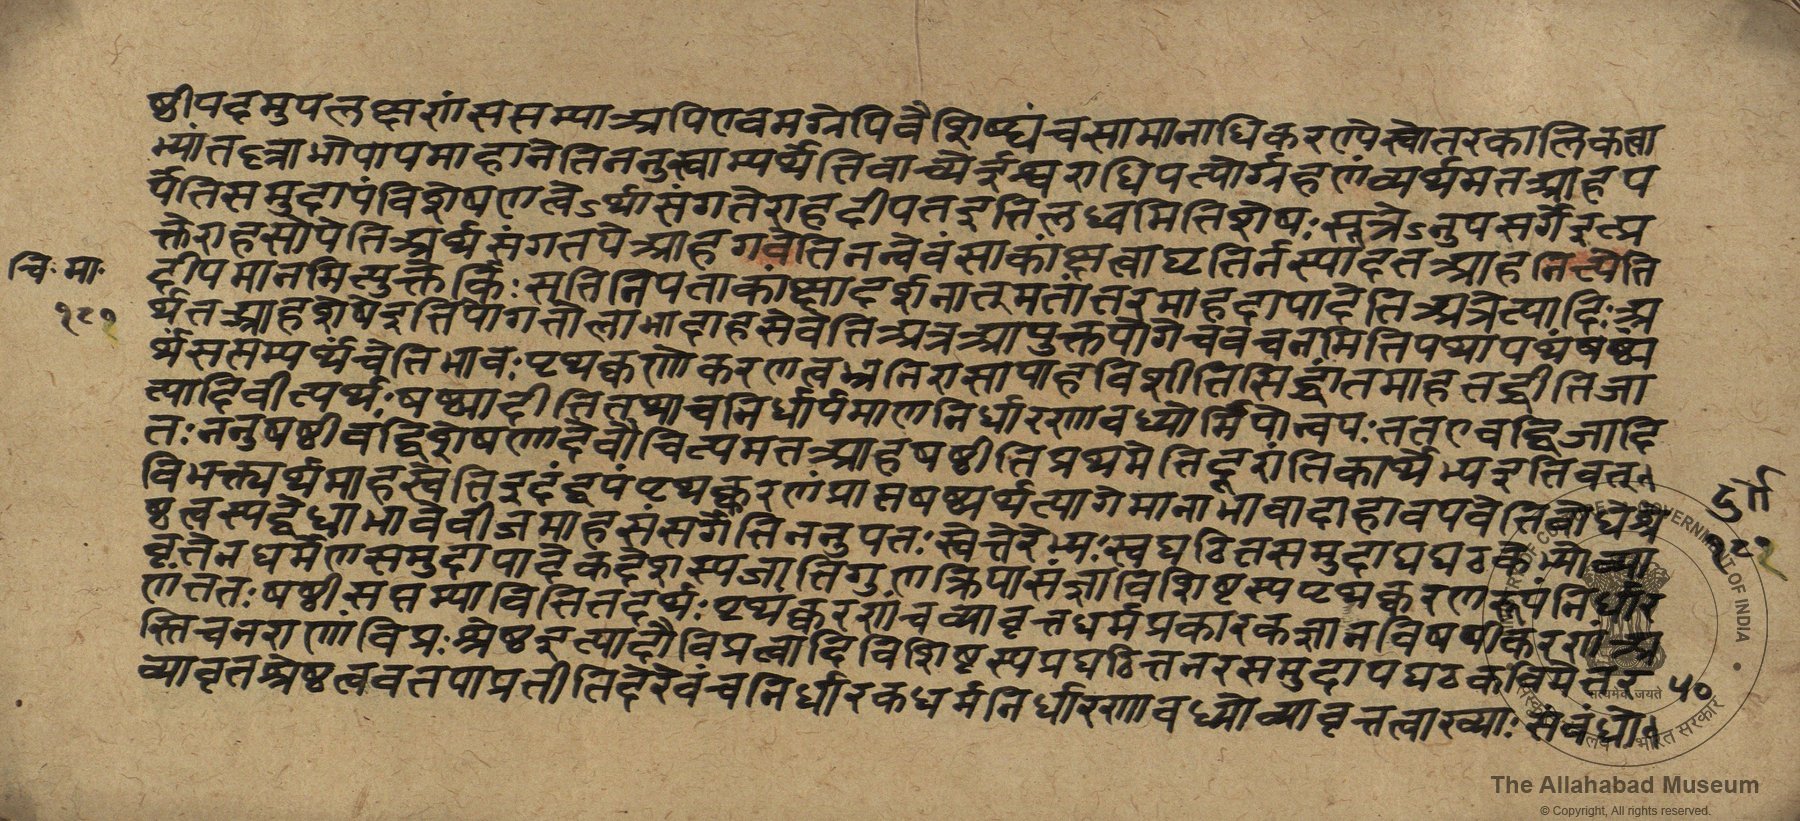 ष्ठीपदमुपलक्षणंससम्या अपिएवमग्रेपिवैशिष्घंचसामानाधिकरएपेत्वोतरकालिकत्वा
भ्यांतद्दत्राभोपापमाहानेतिननुस्वाम्पर्थ्येतिवाच्येर्इश्वराधिपत्पोर्ग्रहणंव्यर्थमतआहप
र्पेतिसमुदापंविशेषणत्वेऽर्थासंगतेराहदीपतइतिलघ्वमितिशेषः सूत्रेऽनुपसर्गेइत्प्र
क्तेराहसोपेतिअर्थसंगतपेआहगवेतिनन्वेवंसाकांक्षत्वाघ्टतिर्नस्पादतआहनित्पेति
दीपमानमित्युक्तेकिंः सतिनिपताकांक्षादर्शनात्मतांतरमाहदापादेतिअत्रेत्यादिः अ
र्थतआहशेषेइतिपोगतोलाभादाहसेवेतिअत्रआपुक्तपोगेचवचनमितिपथापथंषष्ठ्य
र्थससम्पर्थ्यंचेतिभावः पृथक्करणेकरणत्वभ्रनिरासापाहविशीतिसिद्धांतमाहतद्धीतिजा
त्यादिवीत्पर्थः षष्ठ्यादीतितथाचनिर्धार्पमाणनिर्धारणावध्योर्मिपोन्वपः ततएवद्विजादि
तः ननुषष्ठीवद्विशेषणदेवौचित्यमतआहषष्ठीतिप्रथमेतिदूरांतिकार्थ्येभ्यइतिवत्
विभक्त्यर्थमाहस्वेतिइदंद्वपंपृथक्करणंप्राप्तषष्ठ्यर्थत्यागेमानाभावादाहावपवेतिबोधेश्रे
ष्ठत्वस्पद्वेधाभावेवीजमाहसंसर्गेतिननुपतः स्वेत्तरेभ्यः स्वघठितसमुदाघघठकेभ्योव्या
वृतेनधर्मेणसमुदापादेकदेशस्पजातिगुणक्रिपासंज्ञाविशिष्टस्पपृथक्करणरूपंनिर्धार
णंततः षष्ठीसप्तम्याविसितदर्थः पृथक्करणंचव्यावृत्तधर्मप्रकारकज्ञानविषपीकरणंअ
स्तिचनराणांविप्रः श्रेष्ठइत्यादौविप्रत्वादिविशिष्टस्पप्रघठितनरसमुदापघठकविप्रेतरे
व्यावृतश्रेष्ठत्ववतपाप्रतीतिदेरेवंचनिर्धारकधर्मनिर्धारणावध्योव्यावृत्तत्वाख्याः संबंधो
चिः माः
१८०
दुर्गा
५०
सत्यमेव जयते
The Allahabad Museum
© Copyright, All rights reserved.